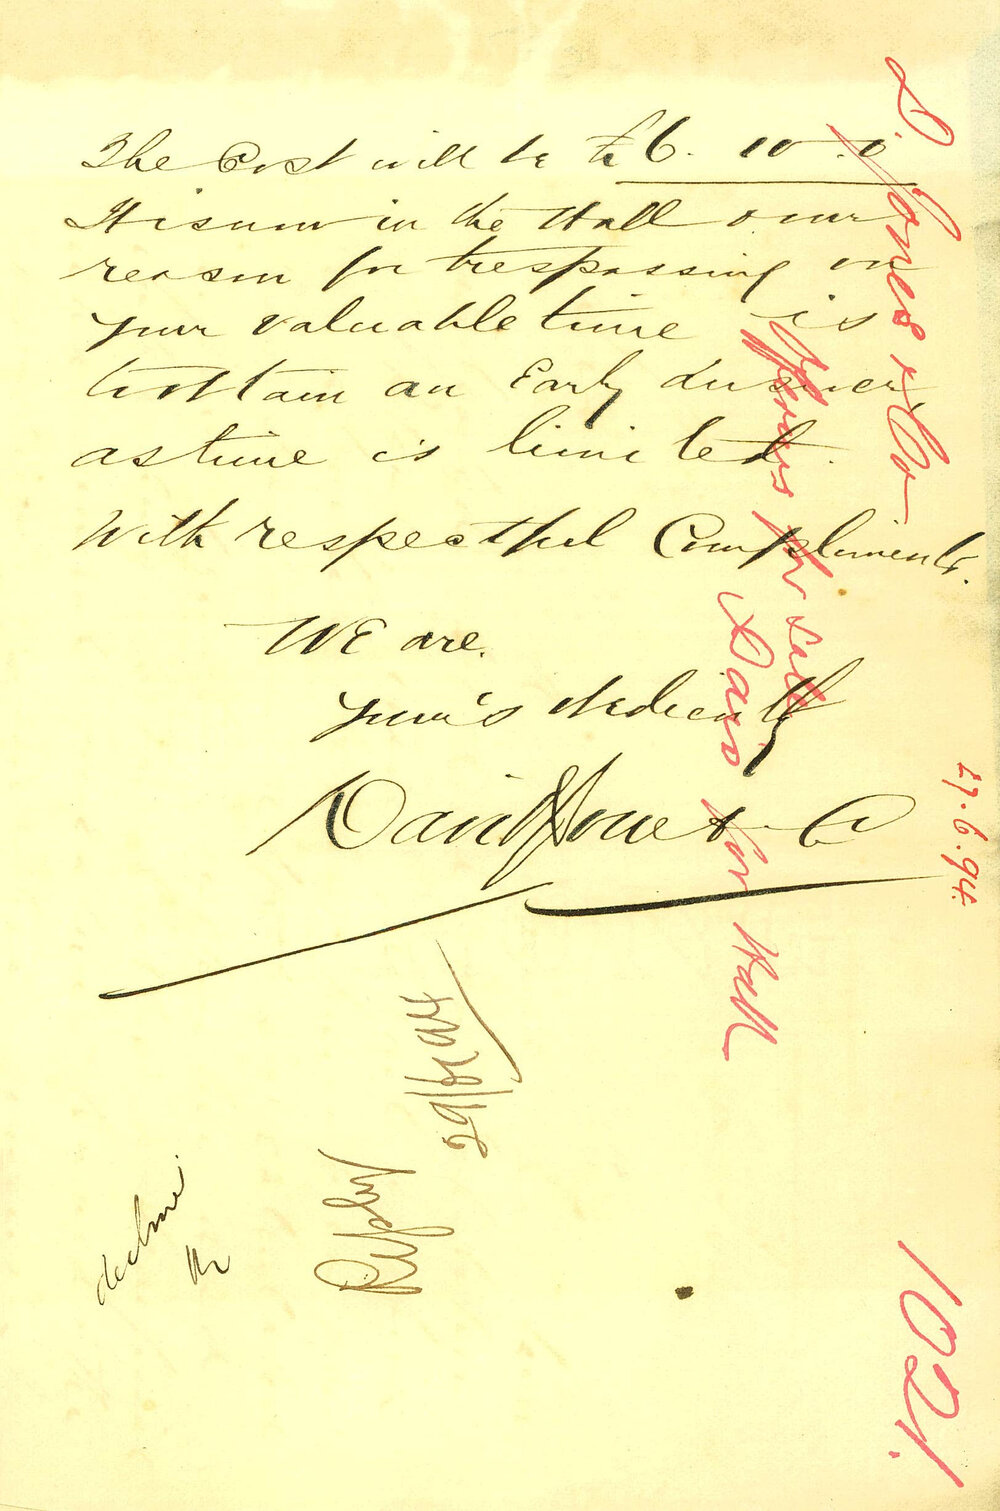 The Cost will be £6. 10. 0
It is now in the Hall & our
reason for trespassing on
your valuable time is
to obtain an Early answer,
as time is limited.
With respectful Compliments.
We are.
Your's Obediently
David Jones & Co
D. Jones & Co
Offers for sale
Dais for Hall
27.6.94.
Reply
29/6/94
decline
1021.